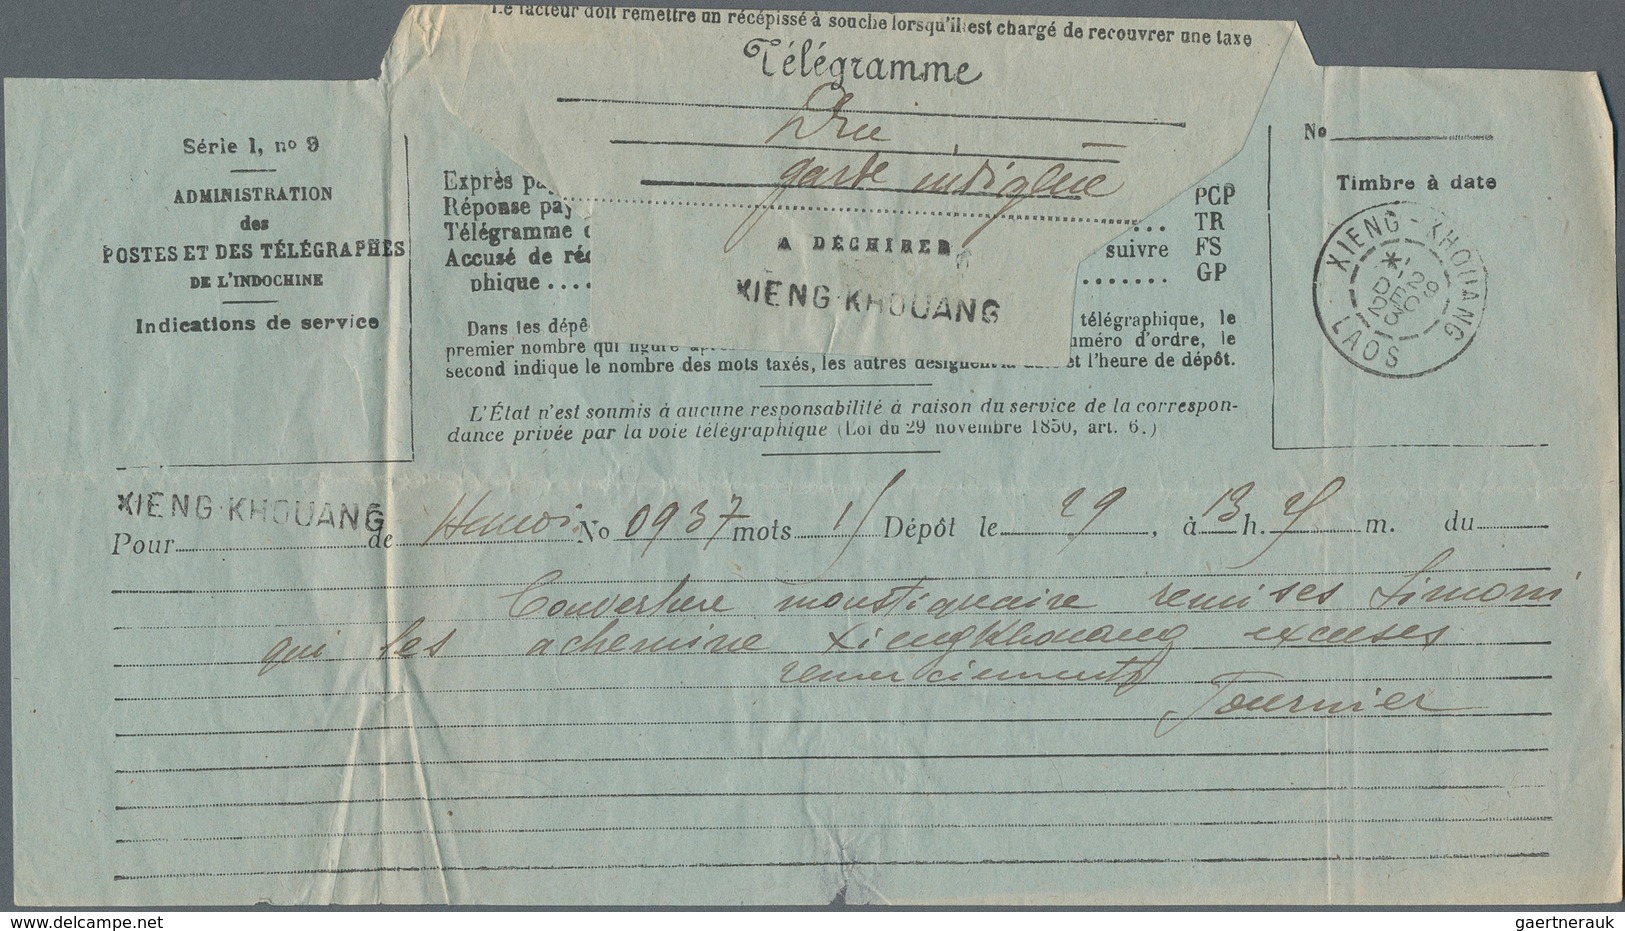 Le facteur doit remettre un récépissé à souche lorsqu'il est chargé de recouvrer une taxe
Télégramme
garde indigène
A DÉCHIRER
XIENG-KHOUANG
Série 1, no 9
ADMINISTRATION
des
POSTES ET DES TÉLÉGRAPHES
DE L'INDOCHINE
Indications de service
Exprès pa
Réponse pay
Télégramme
Accusé de ré
phique ....
PCP
... TR
suivre FS
....... GP
Dans les dépê
télégraphique, le
premier nombre qui figure
uméro d'ordre, le
second indique le nombre des mots taxés, les autres désignent la date et l'heure de dépôt.
L'État n'est soumis à aucune responsabilité à raison du service de la correspon-
dance privée par la voie télégraphique (Loi du 29 novembre 1850, art. 6.)
No
Timbre à date
XIENG-KHOUANG
LAOS
XIENG-KHOUANG
Pour de Hanoi No 0937 mots 15 Dépôt le 29, à 13 h. m. du
Couverture moustiquaire remises Simoni
qui les achemine XiengKhouang excuses
remerciements
Fournier
gaertnerauk @